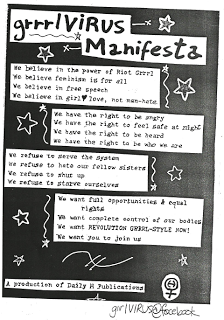 grrrlVIRUS
Manifesta
We believe in the power of Riot Grrrl
We believe feminism is for all
We believe in free speech
We believe in girl love, not man-hate
We have the right to be angry
We have the right to feel safe at night
We have the right to be heard
We have the right to be who we are
We refuse to serve the system
We refuse to hate our fellow sisters
We refuse to shut up
We refuse to starve ourselves
We want full opportunities & equal
rights
We want complete control of our bodies
We want REVOLUTION GRRRL-STYLE NOW!
We want you to join us
A production of Daily H Publications
grrrlVIRUS@facebook